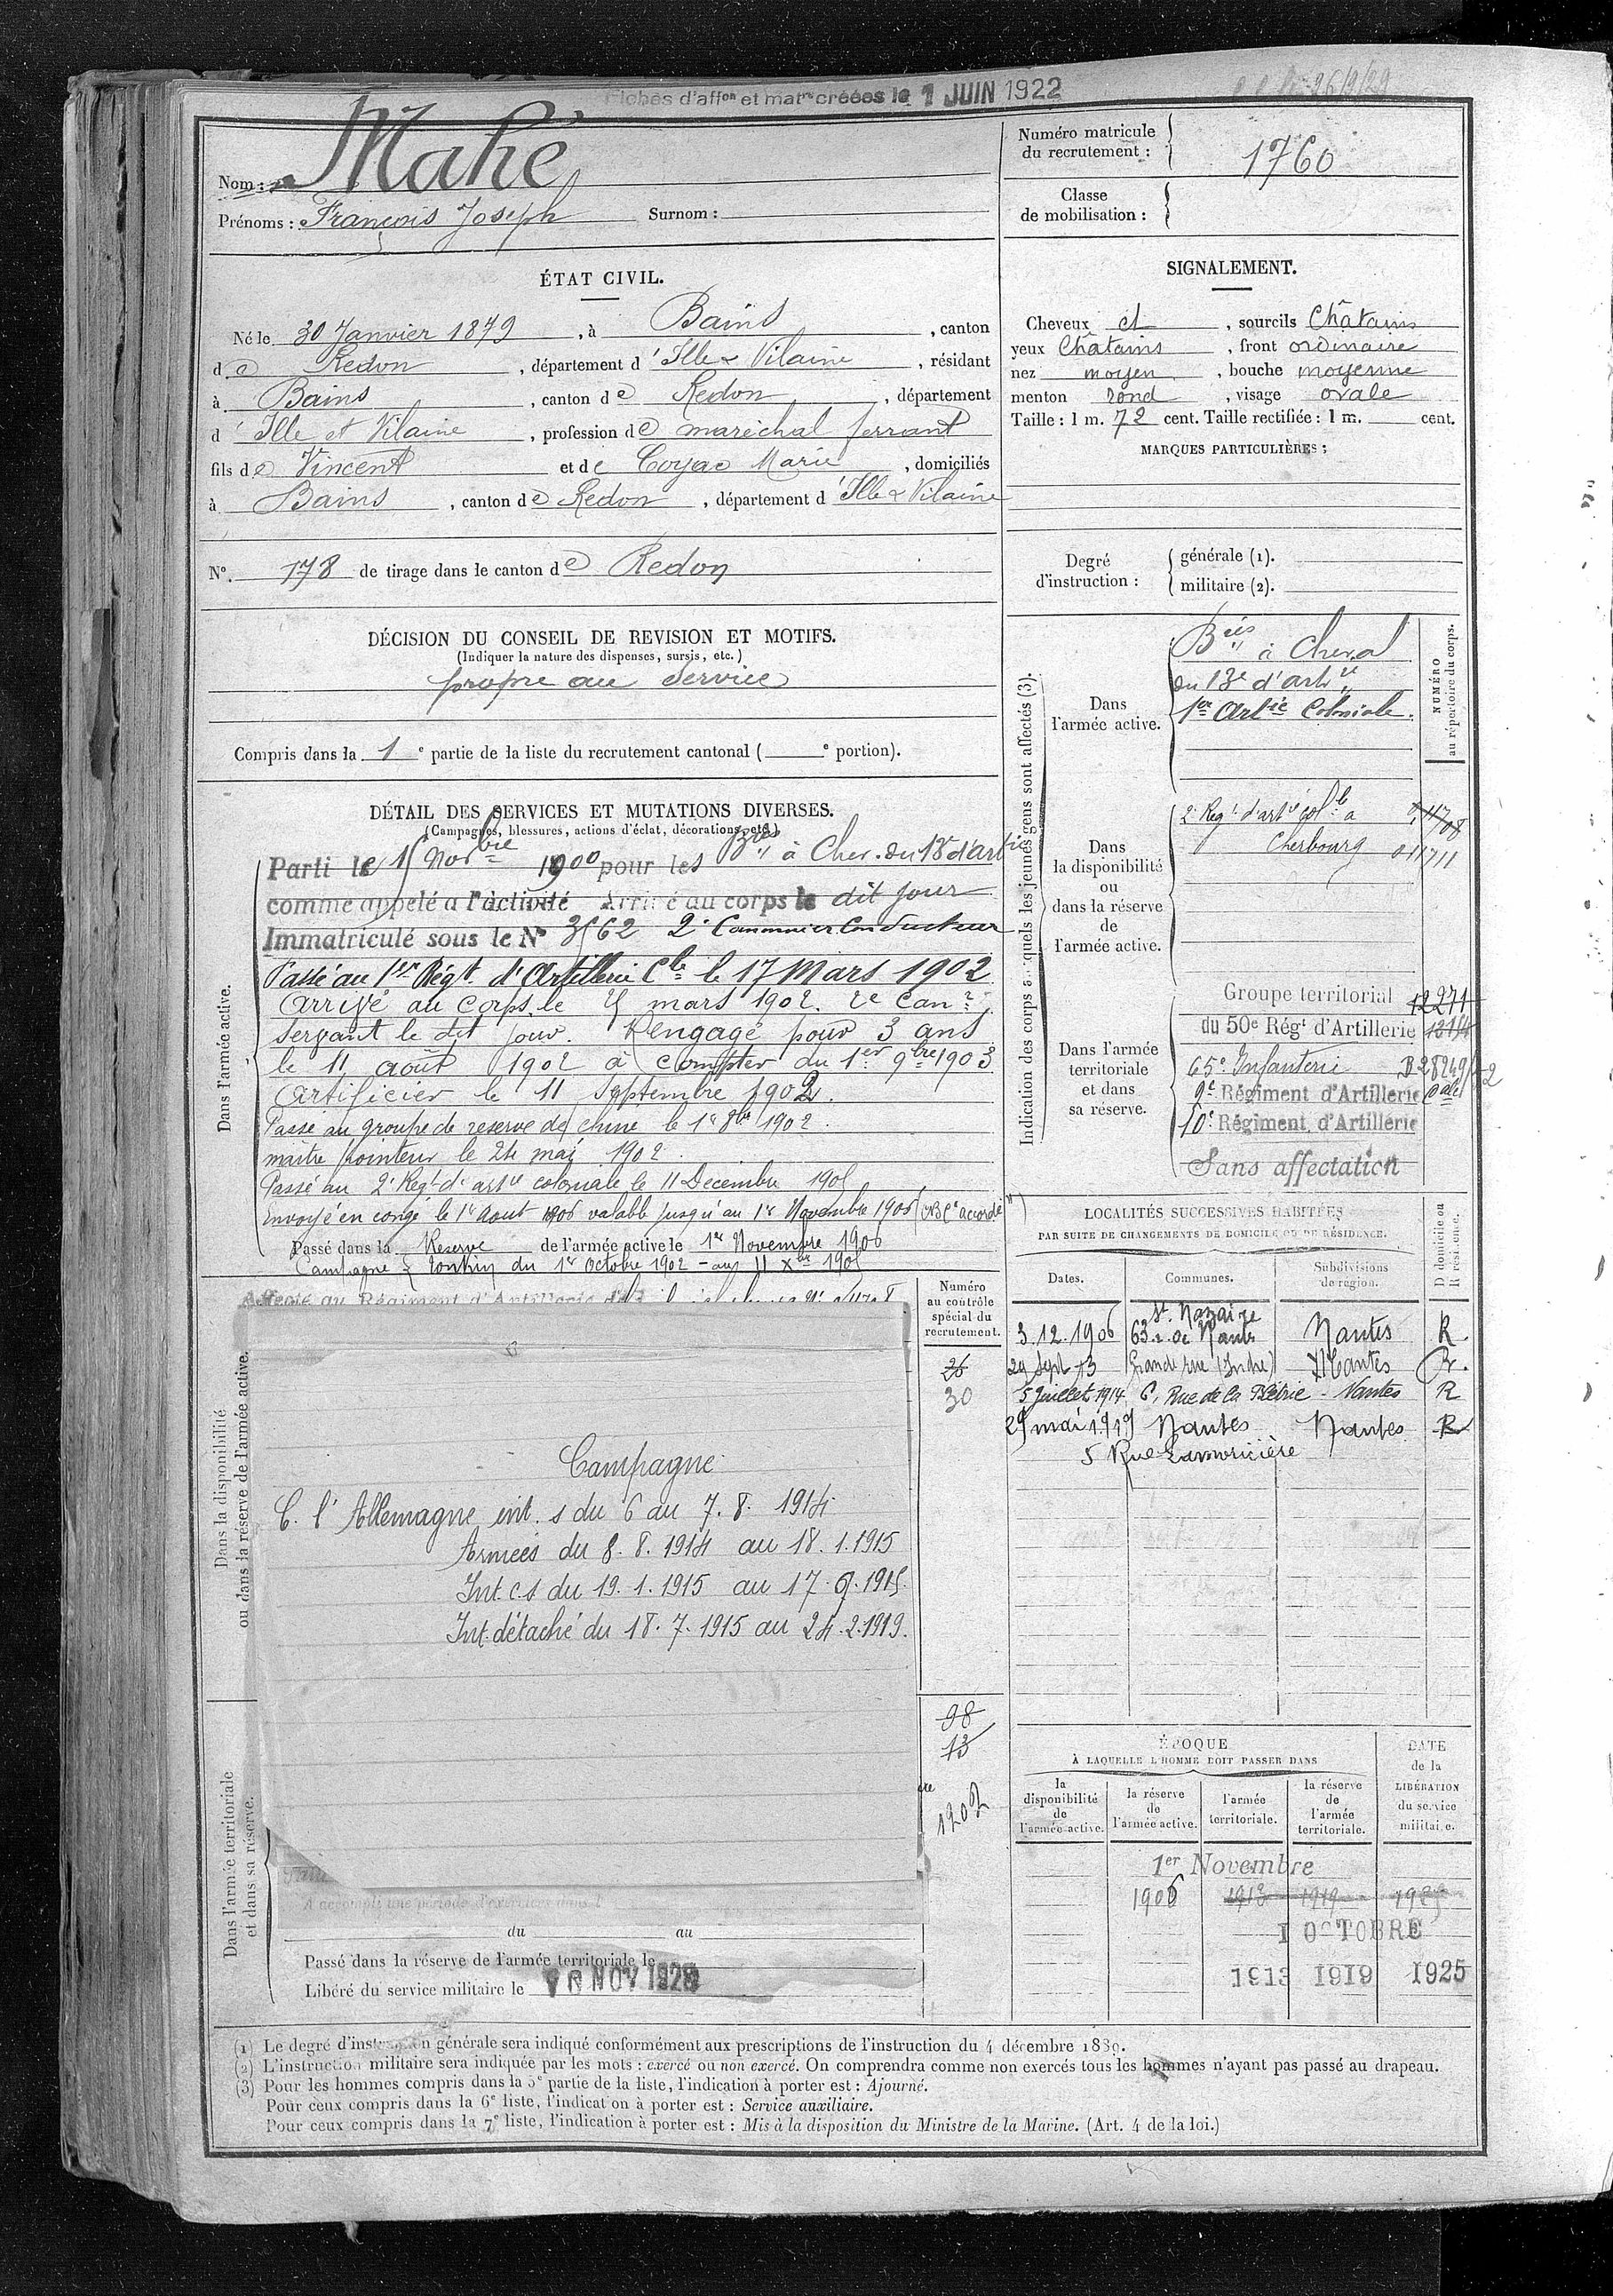 Fiches d'affon et matre créées le 1 JUIN 1922
Nom : Mahé
Prénoms : François Joseph Surnom :
Numéro matricule du recrutement : 1760
Classe de mobilisation :
ÉTAT CIVIL.
Né le 30 Janvier 1879, à Bains, canton
de Redon, département d'Ille & Vilaine, résidant
à Bains, canton de Redon, département
d'Ille et Vilaine, profession de maréchal ferrant
fils de Vincent et de Coyac Marie, domiciliés
à Bains, canton de Redon, département d'Ille & Vilaine
N° 178 de tirage dans le canton de Redon
SIGNALEMENT.
Cheveux et, sourcils Châtains
yeux Châtains, front ordinaire
nez moyen, bouche moyenne
menton rond, visage ovale
Taille : 1 m. 72 cent. Taille rectifiée : 1 m. cent.
MARQUES PARTICULIÈRES :
Degré d'instruction : générale (1).
militaire (2).
DÉCISION DU CONSEIL DE REVISION ET MOTIFS.
(Indiquer la nature des dispenses, sursis, etc.)
propre au service
Compris dans la 1e partie de la liste du recrutement cantonal ( e portion).
DÉTAIL DES SERVICES ET MUTATIONS DIVERSES.
(Campagnes, blessures, actions d'éclat, décorations, etc.)
Dans l'armée active.
Parti le 15 Novbre 1900 pour les Bries à Chev. du 13e d'artie
comme appelé à l'activité Arrivé au corps le dit jour
Immatriculé sous le N° 3562 2e Canonnier Conducteur
Passé au 1er Régt. d'Artillerie Cle le 17 Mars 1902
Arrivé au Corps le 25 mars 1902. 2e Canr
servant le dit jour. Rengagé pour 3 ans
le 11 août 1902 à compter du 1er 9bre 1903
Artificier le 11 Septembre 1902.
Passé au groupe de reserve de chine le 1er 8bre 1902.
maitre pointeur le 24 mai 1902.
Passé au 2e Régt d'artie coloniale le 11 Decembre 1905
Envoyé en congé le 1er Aout 1906 valable jusqu'au 1er Novembre 1906 (CBCe accordé)
Passé dans la Reserve de l'armée active le 1er Novembre 1906
Campagne : Tonkin du 1er Octobre 1902 - au 11 Xbre 1905
Dans la disponibilité ou dans la réserve de l'armée active.
Affecté au Régiment d'Artillerie
Campagne
C. l'Allemagne int. s du 6 au 7. 8. 1914
Armées du 8. 8. 1914 au 18. 1. 1915
Int. c.s du 19. 1. 1915 au 17. 7. 1915.
Int. détaché du 18. 7. 1915 au 24. 2. 1919.
Numéro au contrôle spécial du recrutement.
26
30
98
13
1202
Dans l'armée territoriale et dans sa réserve.
A accompli une période d'exercices dans l
du au
Passé dans la réserve de l'armée territoriale le
Libéré du service militaire le NOV 1928
Indication des corps auxquels les jeunes gens sont affectés (3).
NUMÉRO au répertoire du corps.
Dans l'armée active.
Bries à Cheval
du 13e d'artie
1er Artie Coloniale.
Dans la disponibilité ou dans la réserve de l'armée active.
2e Régt d'artie Colle à 011708
Cherbourg 011711
Dans l'armée territoriale et dans sa réserve.
Groupe territorial 12271
du 50e Régt d'Artillerie
65e Infanterie
9e Régiment d'Artillerie
10e Régiment d'Artillerie
Sans affectation
LOCALITÉS SUCCESSIVES HABITÉES
PAR SUITE DE CHANGEMENTS DE DOMICILE OU DE RÉSIDENCE.
Dates. Communes. Subdivisions de région. D domicile ou R résidence.
3.12.1906 St Nazaire 63 r. de Nantes Nantes R.
29 Sept 13 Grande rue (Indre) Nantes R.
5 Juillet 1914 6, Rue de la Nantes R
29 mai 1919 Nantes Nantes R
5 Rue Lamoricière
ÉPOQUE À LAQUELLE L'HOMME DOIT PASSER DANS
la disponibilité de l'armée active. la réserve de l'armée active. l'armée territoriale. la réserve de l'armée territoriale. DATE de la LIBÉRATION du service militaire.
1er Novembre
1906 1913 1919 1925
1 OCTOBRE
1913 1919 1925
(1) Le degré d'instruction générale sera indiqué conformément aux prescriptions de l'instruction du 4 décembre 1889.
(2) L'instruction militaire sera indiquée par les mots : exercé ou non exercé. On comprendra comme non exercés tous les hommes n'ayant pas passé au drapeau.
(3) Pour les hommes compris dans la 5e partie de la liste, l'indication à porter est : Ajourné.
Pour ceux compris dans la 6e liste, l'indication à porter est : Service auxiliaire.
Pour ceux compris dans la 7e liste, l'indication à porter est : Mis à la disposition du Ministre de la Marine. (Art. 4 de la loi.)